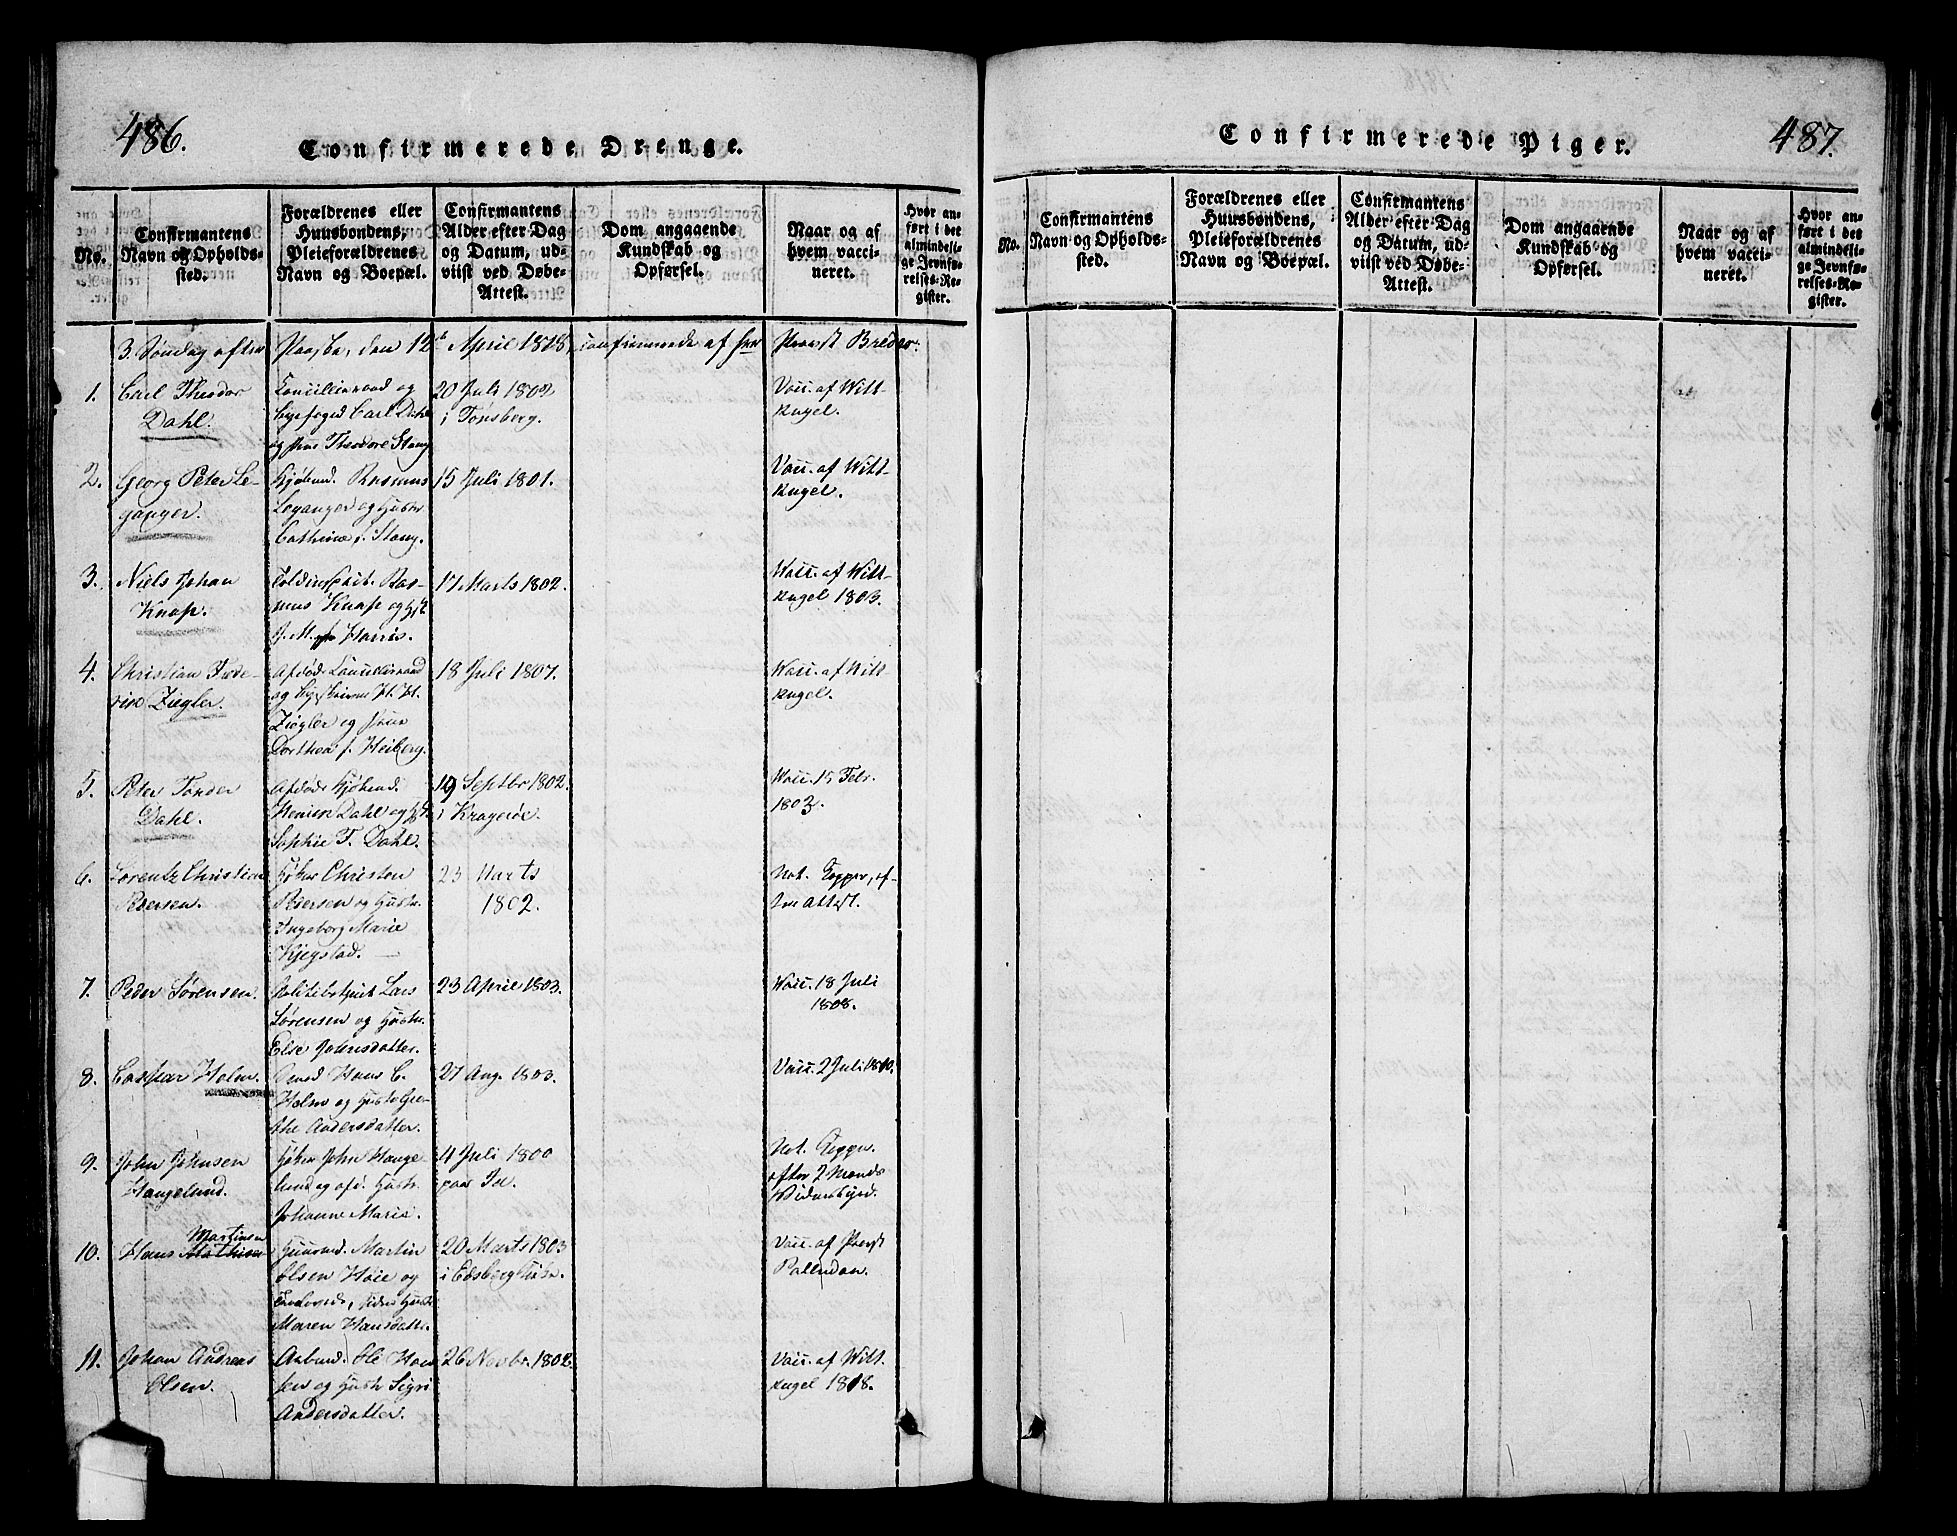 486.
Confirmerede Drenge.
No.
Confirmantens
Navn og Opholds-
sted.
Forældrenes eller
Huusbondens,
Pleieforældrenes
Navn og Boepæl.
Confirmantens
Alder efter Dag
og Datum, ud-
viist ved Døbe-
Attest.
Dom angaaende
Kundskab og
Opførsel.
Naar og af
hvem vacci-
neret.
Hvor an-
ført i det
almindeli-
ge Jevnfø-
relses-Re-
gister.
3. Søndag efter Paaske, den 12t April 1818, confirmerede af Herr Provst Bredsr.
1.
Carl Theodor
Dahl.
Cancelliraad og
Byefoged Carl Dahl
og Frue Theodore Stang
20 Juli 1802
i Tønsberg.
Vacc. af Witt-
kugel.
2.
Georg Peter Le-
ganger.
Kjøbmd. Rasmus
Leganger og Hustr
Cathrine f. Stang.
15 Juli 1801.
Vacc. af Witt-
kugel.
3.
Niels Johan
Knap.
Ras-
mus Knap og
J. M. Harris.
17 Marts 1802.
Vacc. af Witt-
kugel 1803.
4.
Christian Frede-
rik Ziegler.
Afdøde Cancelliraad
og Byeskriver H. H.
Ziegler og Frue
Dorthea f. Heiberg.
18 Juli 1807.
Vacc. af Witt-
kugel.
5.
Peter Tønder
Dahl.
Afdøde Kjøbmd.
Henrik Dahl og
Sophie F. Dahl.
19 Septbr 1802.
i Kragerøe.
Vacc. 15 Febr.
1803.
6.
Lorentz Christian
Pedersen.
Christen
Pedersen og Hustr.
Ingeborg Marie
Kjegstad.
23 Marts
1802.
Nat. Kopper, ef-
ter Attest.
7.
Peder Sørensen.
Politiebetjent Lars
Sørensen og Hustr.
Else Johnsdatter.
23 April 1803.
Vacc. 18 Juli
1808.
8.
Caspar Holm.
Hans C.
Holm og Hustr Gre-
the Andersdatter.
27 Aug. 1803.
Vacc. 2 Juli 1810.
9.
John Johnsen
Haugelund.
John Hauge-
lund og afd. Hustr.
Johanne Marie.
4 Juli 1800
paa
Nat. Kopper.
efter 2 Mænds
Vidnesbyrd.
10.
Martinsen
Hans Mathisen
Huusmd. Martin
Olsen Høie og
Hustr
Maren Hansdatter.
20 Marts 1803
i Edsberg Kirke.
Vacc. af Provst
Palludan.
11.
Johan Andreas
Olsen.
Arbmd. Ole Han-
sen og Hustr Sigri
Andersdatter.
26 Novbr. 1802.
Vacc. af Witt-
kugel 1818.
Confirmerede Piger.
487.
No.
Confirmantens
Navn og Opholds-
sted.
Forældrenes eller
Huusbondens,
Pleieforældrenes
Navn og Boepæl.
Confirmantens
Alder efter Dag
og Datum, ud-
viist ved Døbe-
Attest.
Dom angaaende
Kundskab og
Opførsel.
Naar og af
hvem vacci-
neret.
Hvor an-
ført i det
almindeli-
ge Jevnfø-
relses-Re-
gister.